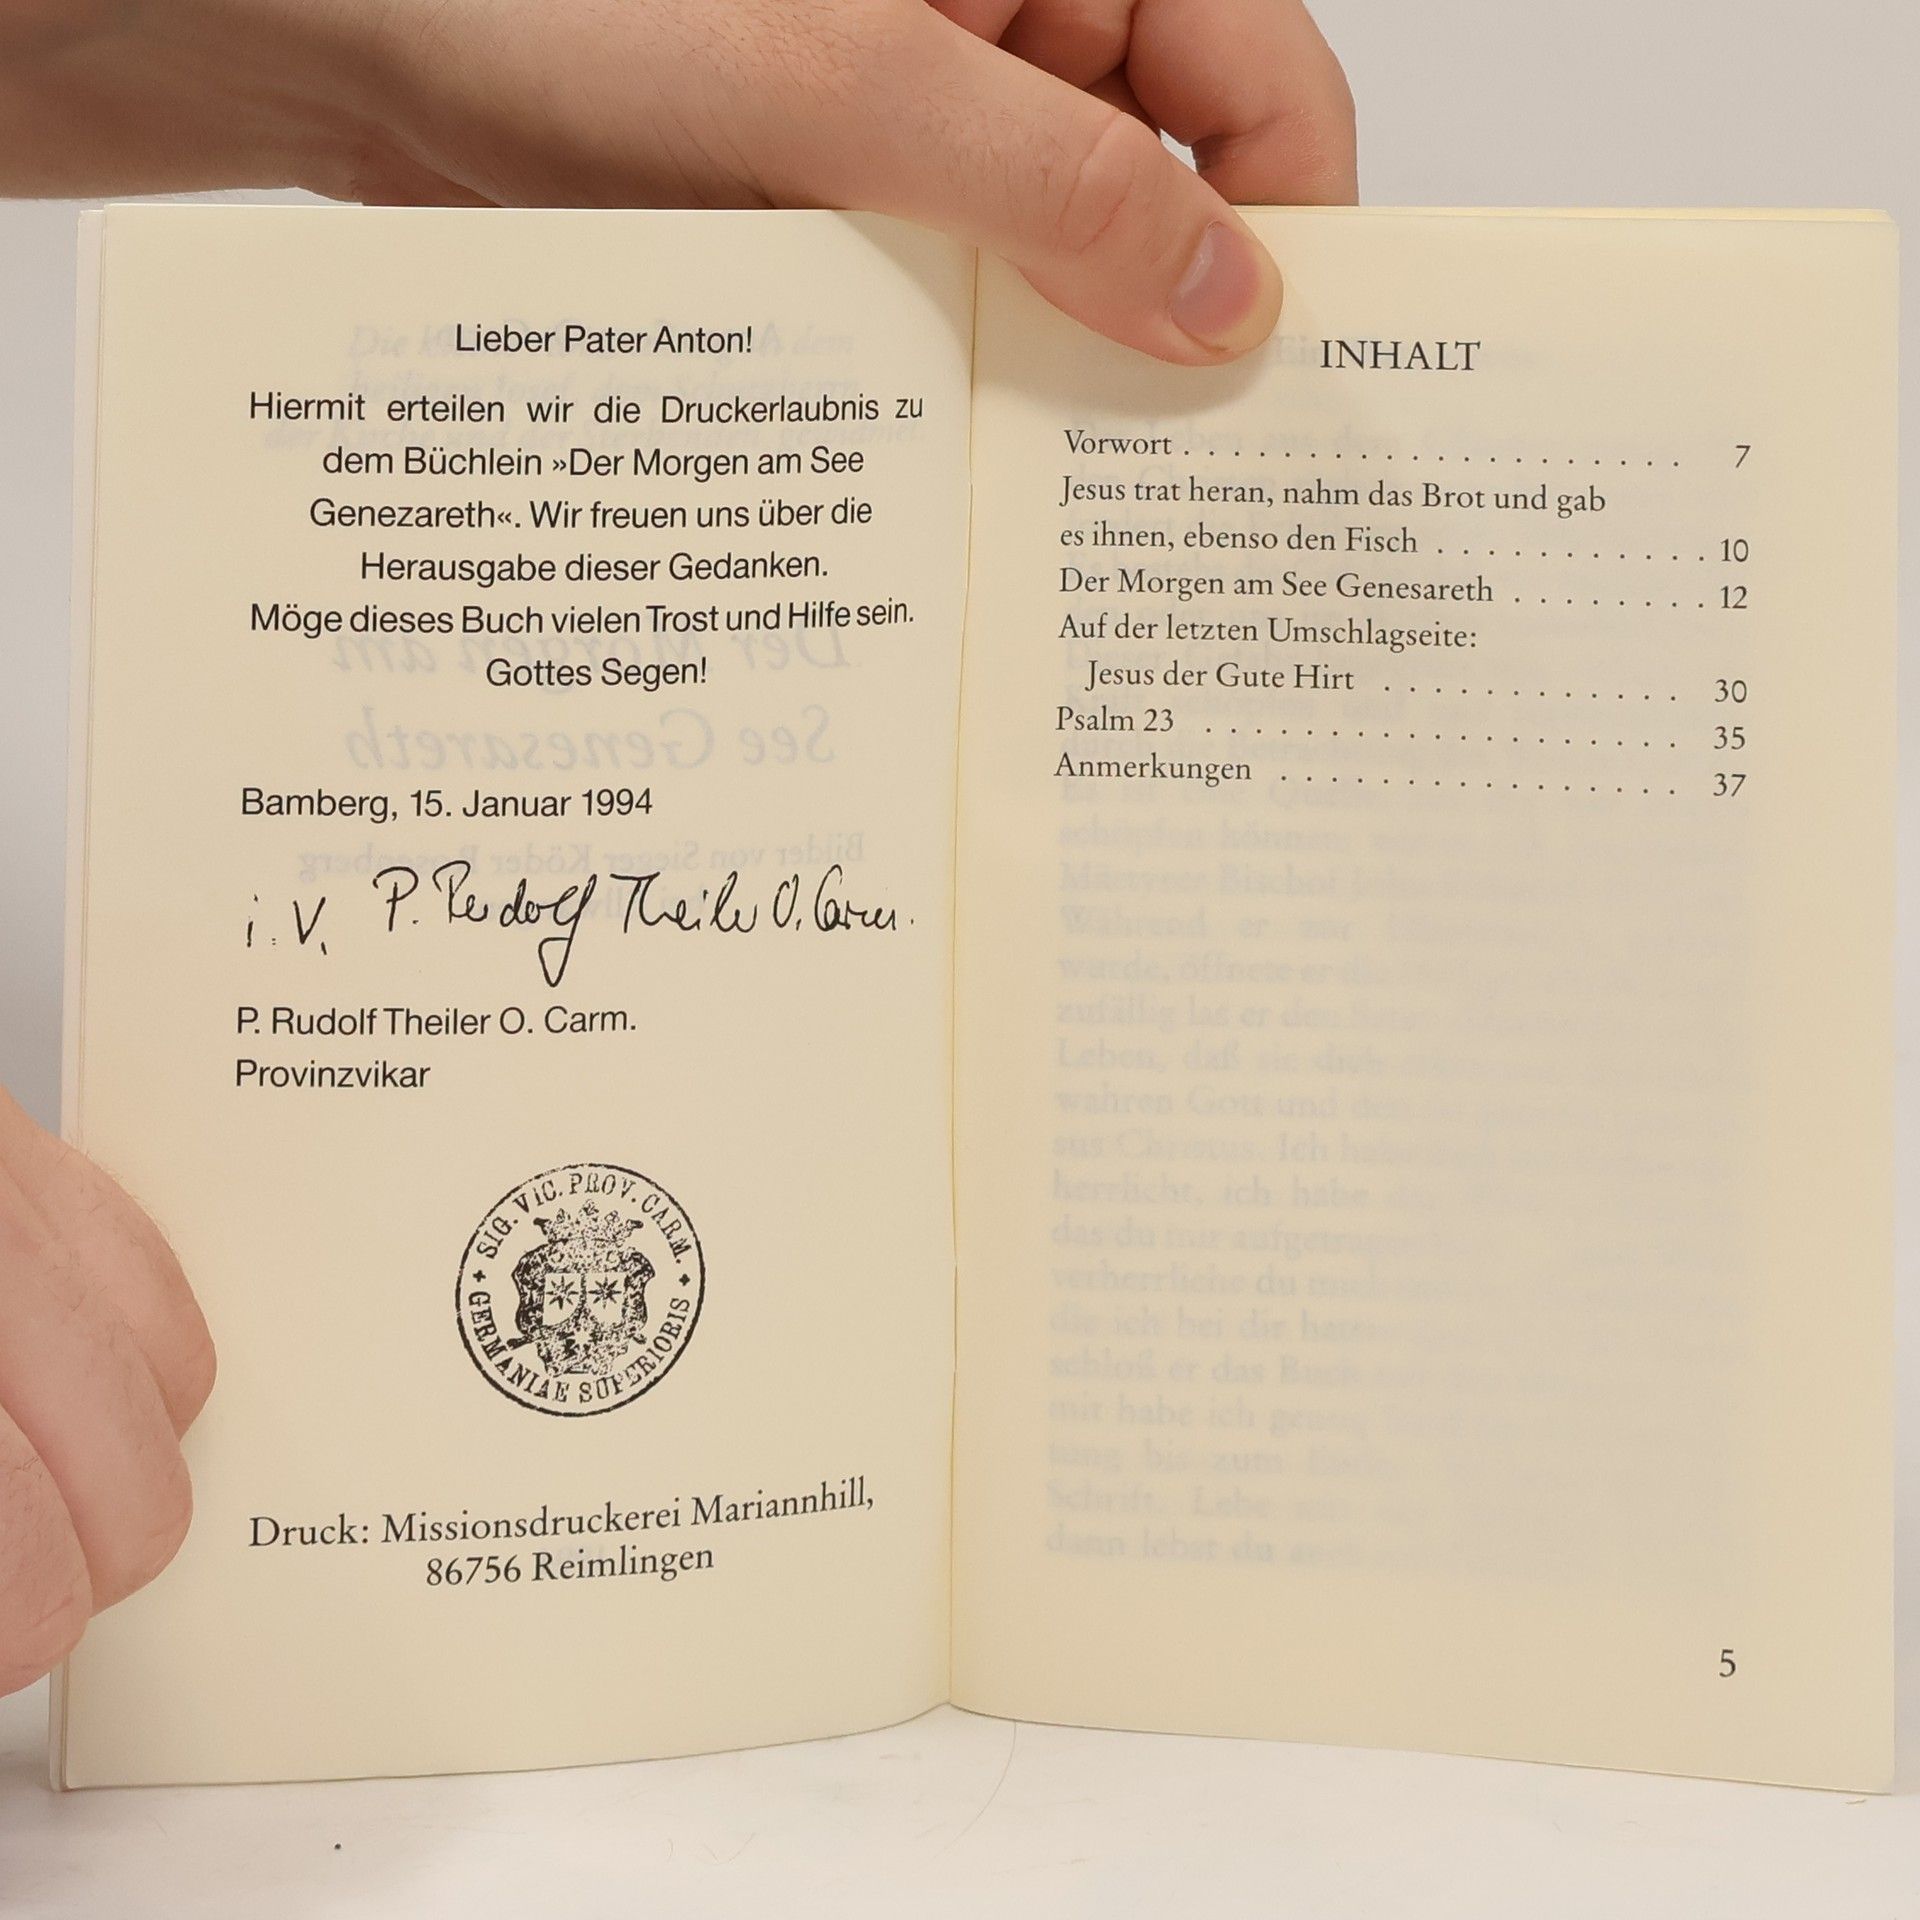 Lieber Pater Anton!
Hiermit erteilen wir die Druckerlaubnis zu
dem Büchlein »Der Morgen am See
Genezareth«. Wir freuen uns über die
Herausgabe dieser Gedanken.
Möge dieses Buch vielen Trost und Hilfe sein.
Gottes Segen!
Bamberg, 15. Januar 1994
i. V. P. Rudolf Theiler O. Carm.
P. Rudolf Theiler O. Carm.
Provinzvikar
SIG. VIC. PROV. CARM.
GERMANIAE SUPERIORIS
Druck: Missionsdruckerei Mariannhill,
86756 Reimlingen
INHALT
Vorwort . . . . . . . . . . . . . . . . . . . . 7
Jesus trat heran, nahm das Brot und gab
es ihnen, ebenso den Fisch . . . . . . . . . . . 10
Der Morgen am See Genesareth . . . . . . . . 12
Auf der letzten Umschlagseite:
Jesus der Gute Hirt . . . . . . . . . . . . 30
Psalm 23 . . . . . . . . . . . . . . . . . . . 35
Anmerkungen . . . . . . . . . . . . . . . . 37
5